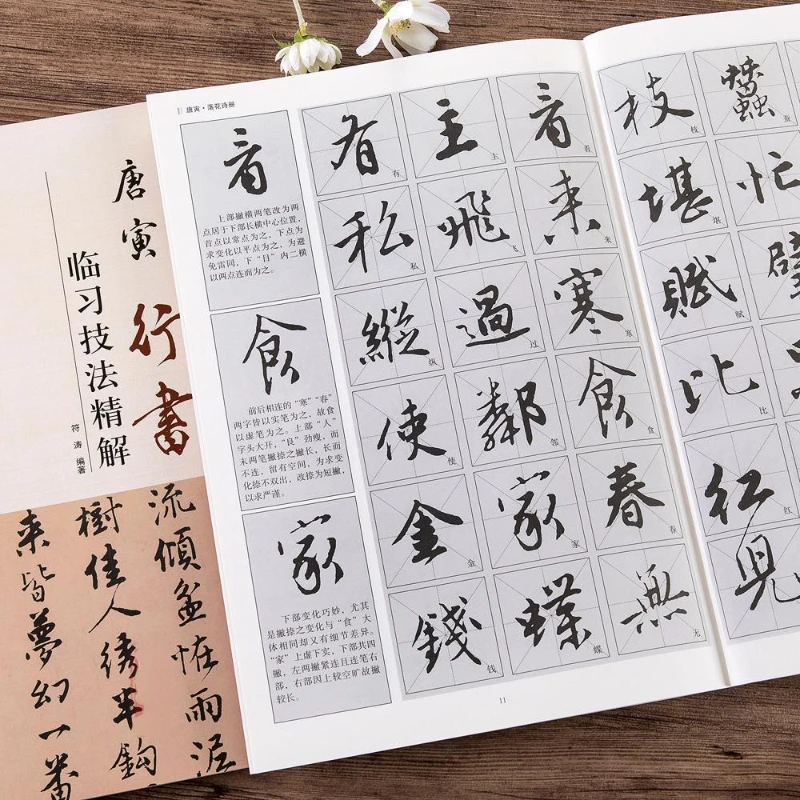 唐寅
行书
临习技法精解
符涛 编著
流倾盆怪雨泥
树佳人绣半钩
来皆梦幻一番
唐寅·落花诗册
音
上部撇横两笔改为两
点居于下部长横中心位置,
首点以常点为之,下点为
求变化以平点为之,为避
免雷同,下“目”内二横
以两点连而为之。
食
前后相连的“寒”“春”
两字皆以实笔为之,故食
以虚笔为之。上部“人”
字头大开,“良”劲瘦,而
末两笔撇捺之撇长,长而
不连,留有空间,为求变
化捺不双出,改捺为短撇,
以求严谨。
家
下部变化巧妙,尤其
是撇捺之变化与“食”大
体相同却又有细节差异。
“家”上虚下实,下部共四
撇,左两撇紧连且连笔右
部,右部因上较空旷故撇
较长。
音 音
来 来
寒 寒
食 食
春 春
無 无
主 主
飛 飞
過 过
鄰 邻
家 家
蝶 蝶
有 有
私 私
縱 纵
使 使
金 金
錢 钱
11
蠶 蚕
忙
枝 枝
堪 堪
賦 赋
比 比
紅 红
兒